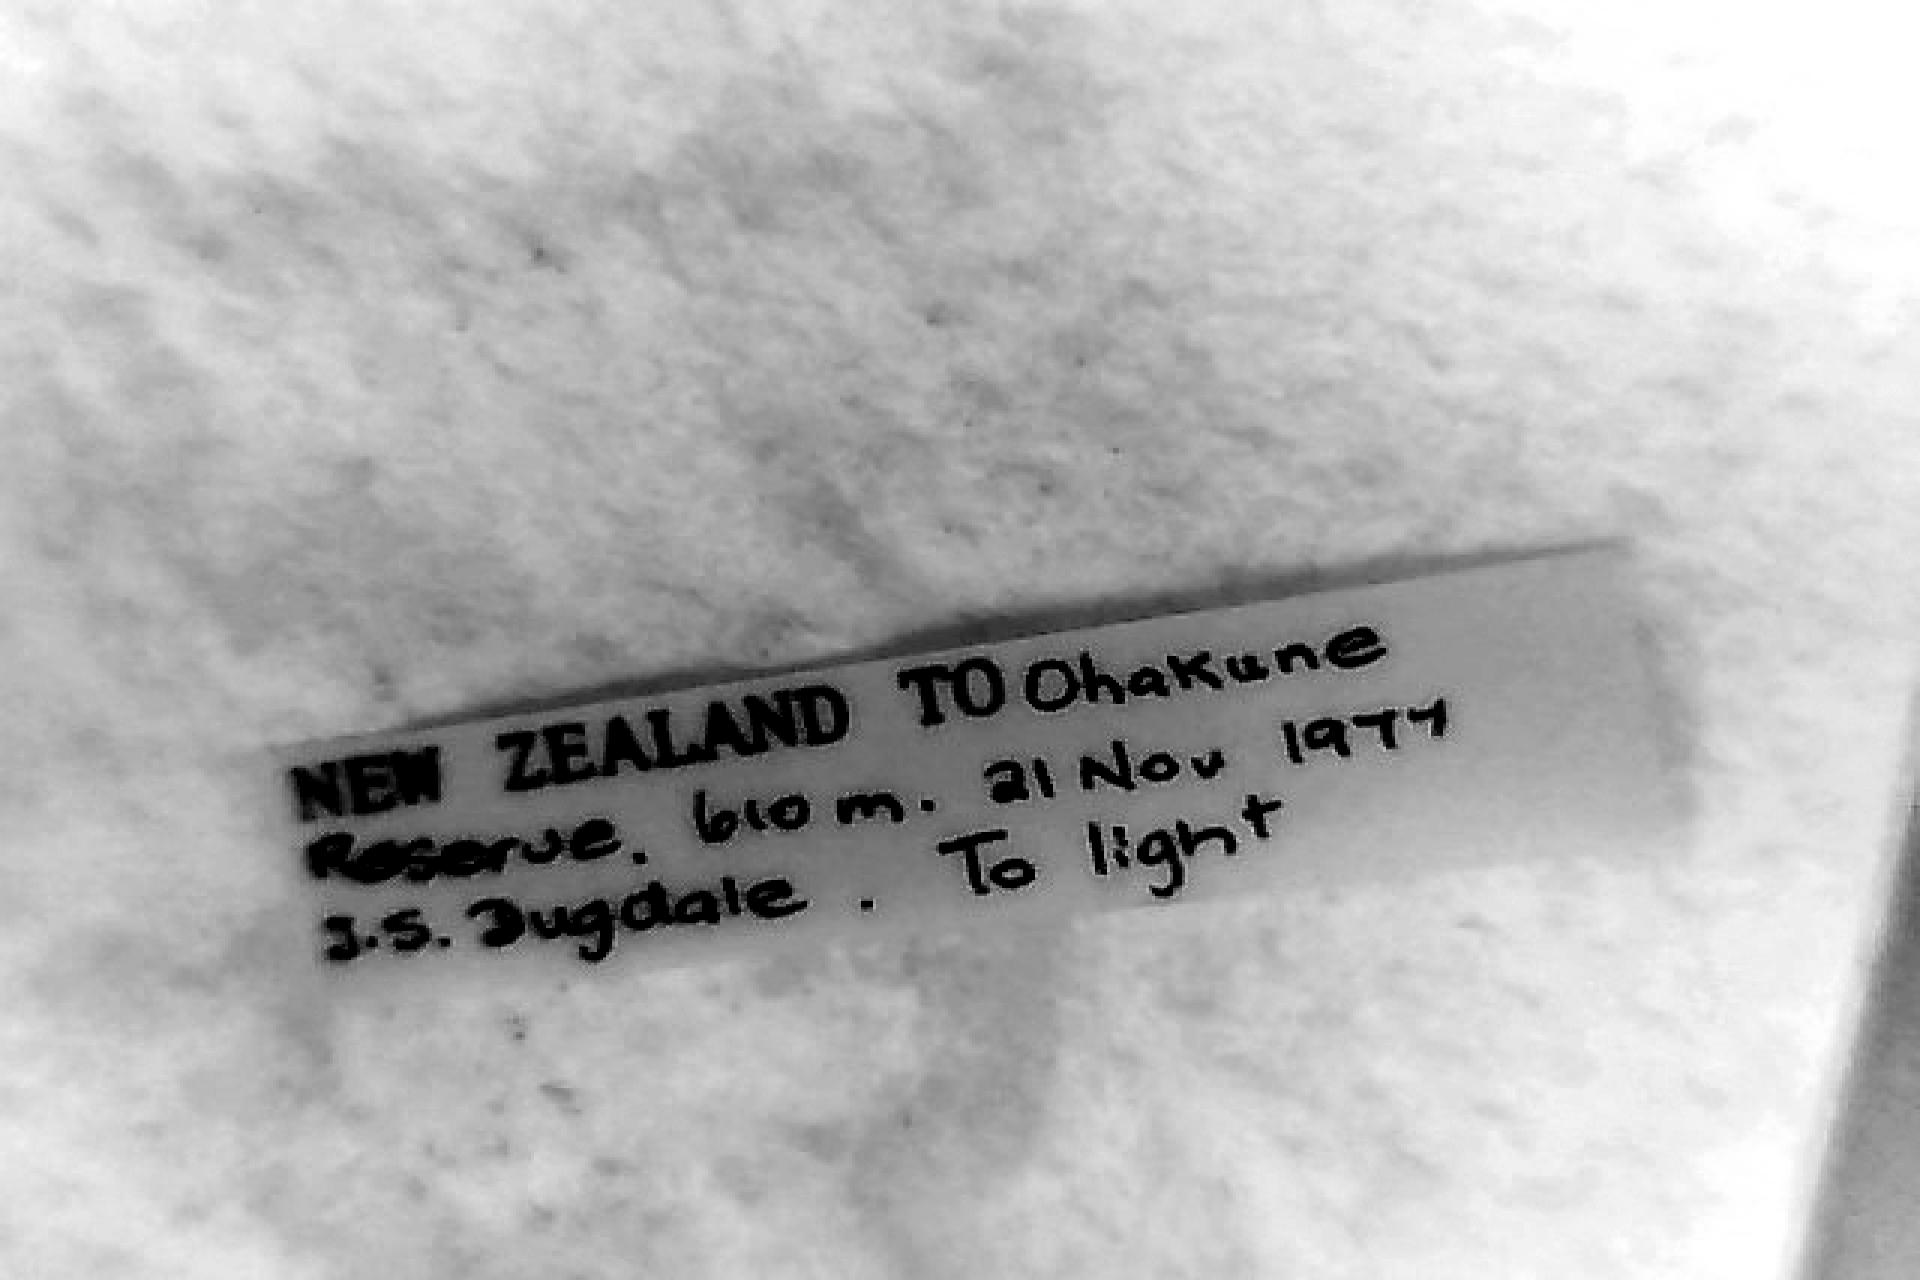 NEW ZEALAND TO Ohakune
Reserve. 610 m. 21 Nov 1977
J.S. Dugdale. To light